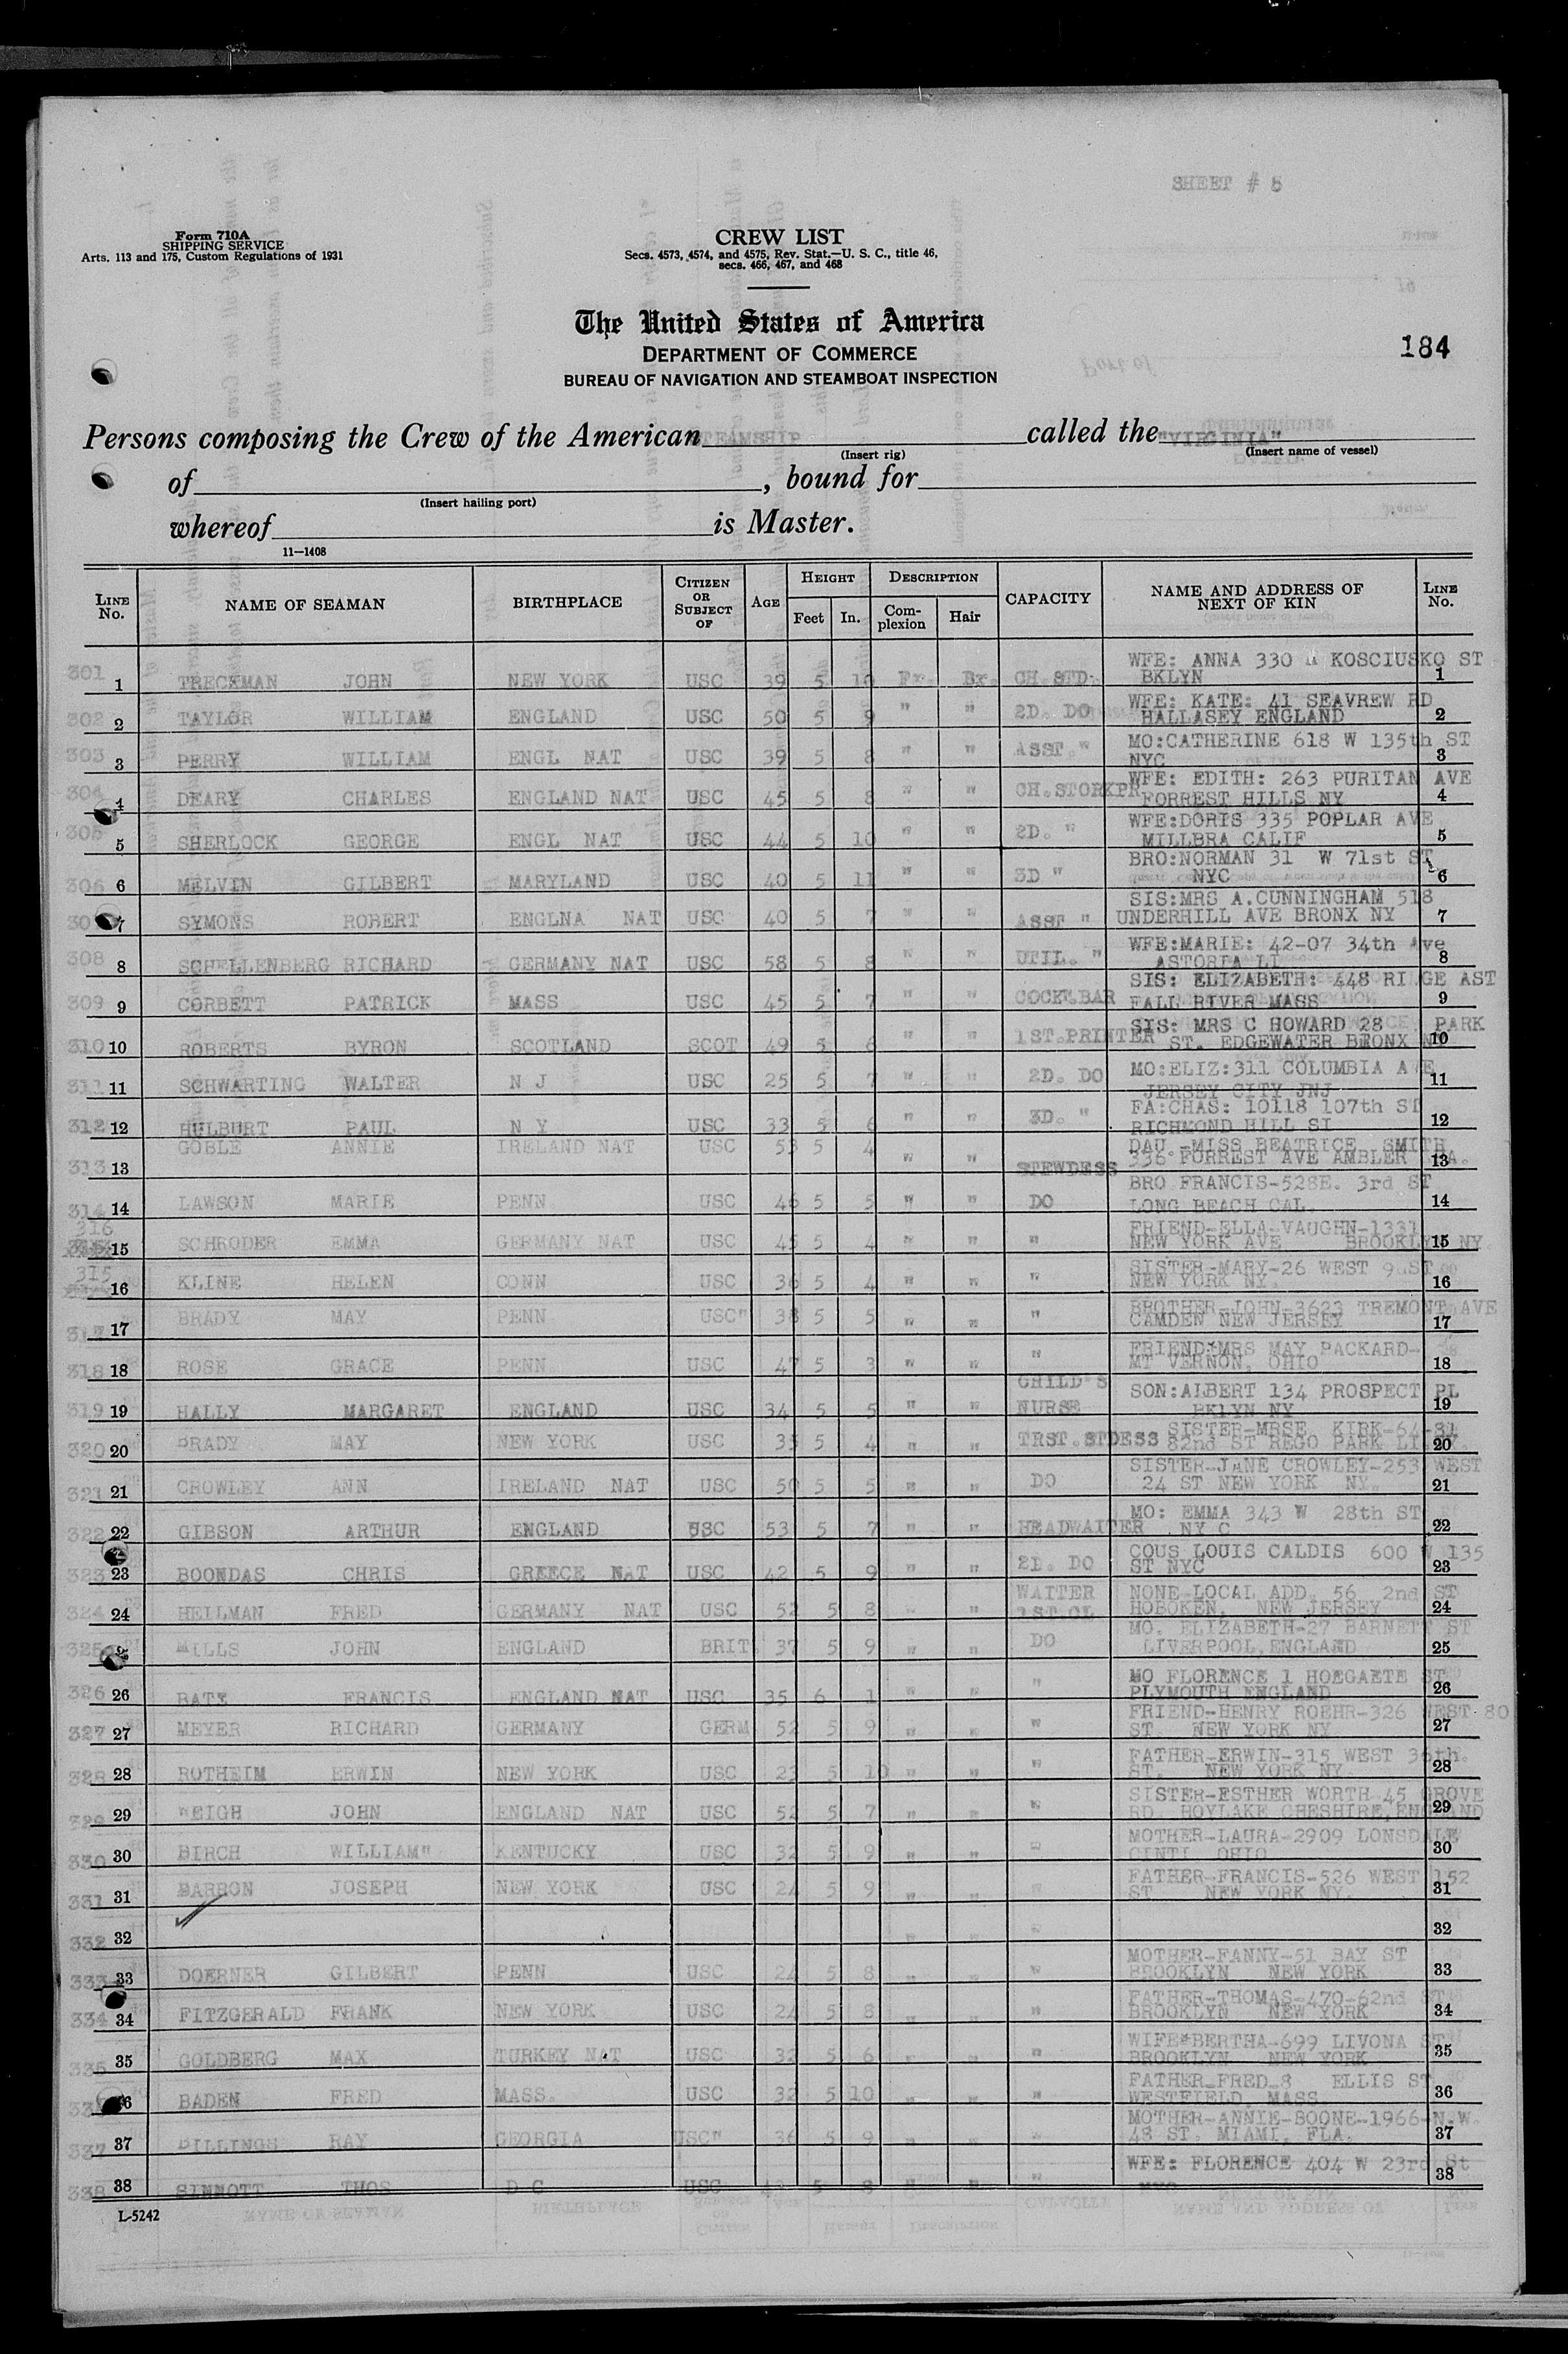 SHEET # 8
Form 710A
SHIPPING SERVICE
Arts. 113 and 175, Custom Regulations of 1931
CREW LIST
Secs. 4573, 4574, and 4575, Rev. Stat.—U. S. C., title 46,
secs. 466, 467, and 468
The United States of America
DEPARTMENT OF COMMERCE
BUREAU OF NAVIGATION AND STEAMBOAT INSPECTION
184
Persons composing the Crew of the American TEAMSHIP called the "VIRGINIA"
(Insert rig) (Insert name of vessel)
of , bound for
(Insert hailing port)
whereof is Master.
11—1408
LINE No. NAME OF SEAMAN BIRTHPLACE CITIZEN OR SUBJECT OF AGE HEIGHT Feet In. DESCRIPTION Complexion Hair CAPACITY NAME AND ADDRESS OF NEXT OF KIN LINE No.
WFE: ANNA 330 A KOSCIUSKO ST
301 1 TRECKMAN JOHN NEW YORK USC 39 5 10 Fr. Br. CH. STD. BKLYN 1
WFE: KATE: 41 SEAVREW RD
302 2 TAYLOR WILLIAM ENGLAND USC 50 5 9 " " 2D. DO HALLASEY ENGLAND 2
MO:CATHERINE 618 W 135th ST
303 3 PERRY WILLIAM ENGL NAT USC 39 5 8 " " ASST. " NYC 3
WFE: EDITH: 263 PURITAN AVE
304 4 DEARY CHARLES ENGLAND NAT USC 45 5 8 " " CH.STORKPR FORREST HILLS NY 4
WFE:DORIS 335 POPLAR AVE
305 5 SHERLOCK GEORGE ENGL NAT USC 44 5 10 " " 2D. " MILLBRA CALIF 5
BRO:NORMAN 31 W 71st ST
306 6 MELVIN GILBERT MARYLAND USC 40 5 11 " " 3D " NYC 6
SIS:MRS A.CUNNINGHAM 518
30 7 SYMONS ROBERT ENGLNA NAT USC 40 5 7 " " ASST " UNDERHILL AVE BRONX NY 7
WFE:MARIE: 42-07 34th Ave
308 8 SCHELLENBERG RICHARD GERMANY NAT USC 58 5 8 " " UTIL. " ASTORPA LI 8
SIS: ELIZABETH: 448 RI GE AST
309 9 CORBETT PATRICK MASS USC 45 5 7 " " COCKT.BAR FALL RIVER MASS 9
SIS: MRS C HOWARD 28 PARK
310 10 ROBERTS BYRON SCOTLAND SCOT 49 5 6 " " 1ST.PRINTER ST. EDGEWATER BRONX N 10
MO:ELIZ:311 COLUMBIA AVE
311 11 SCHWARTING WALTER N J USC 25 5 7 " " 2D. DO JERSEY CITY JNJ 11
FA:CHAS: 10118 107th ST
312 12 HULBURT PAUL N Y USC 33 5 6 " " 3D. " RICHMOND HILL SI 12
GOBLE ANNIE IRELAND NAT USC 53 5 4 DAU -MISS BEATRICE SMITH
313 13 " " STEWDESS 336 FORREST AVE AMBLER A. 13
BRO FRANCIS-528E. 3rd ST
314 14 LAWSON MARIE PENN USC 46 5 5 " " DO LONG BEACH CAL. 14
316 FRIEND-ELLA-VAUGHN-1331
15 SCHRODER EMMA GERMANY NAT USC 45 5 4 " " " NEW YORK AVE BROOKLYN NY 15
315 SISTER-MARY-26 WEST 9 ST
16 KLINE HELEN CONN USC 36 5 4 " " " NEW YORK NY. 16
BROTHER-JOHN-3623 TREMONT AVE
317 17 BRADY MAY PENN USC" 38 5 5 " " " CAMDEN NEW JERSEY 17
FRIEND-MRS MAY PACKARD-
318 18 ROSE GRACE PENN USC 47 5 3 " " " MT VERNON, OHIO 18
CHILD'S SON:ALBERT 134 PROSPECT PL
319 19 HALLY MARGARET ENGLAND USC 34 5 5 " " NURSE BKLYN NY 19
SISTER-MRSE KIRK-64-31
320 20 BRADY MAY NEW YORK USC 35 5 4 " " TRST.STDESS 82nd ST REGO PARK LI 20
SISTER-JANE CROWLEY-253 WEST
321 21 CROWLEY ANN IRELAND NAT USC 50 5 5 " " DO 24 ST NEW YORK NY. 21
MO: EMMA 343 W 28th ST
322 22 GIBSON ARTHUR ENGLAND USC 53 5 7 " " HEADWAITER NY C 22
COUS LOUIS CALDIS 600 W 135
323 23 BOONDAS CHRIS GREECE NAT USC 42 5 9 " " 2D. DO ST NYC 23
WAITER NONE-LOCAL ADD. 56 2nd ST
324 24 HEILMAN FRED GERMANY NAT USC 52 5 8 " " 1ST.CL HOBOKEN, NEW JERSEY 24
MO. ELIZABETH-27 BARNETT ST
325 MILLS JOHN ENGLAND BRIT. 37 5 9 " " DO LIVERPOOL,ENGLAND 25
MO FLORENCE 1 HOEGAETE ST
326 26 BATE FRANCIS ENGLAND NAT USC 35 6 1 " " " PLYMOUTH ENGLAND 26
FRIEND-HENRY ROEHR-326 WEST 80
327 27 MEYER RICHARD GERMANY GERM 52 5 9 " " " ST. NEW YORK NY 27
FATHER-ERWIN-315 WEST 36th.
328 28 ROTHEIM ERWIN NEW YORK USC 23 5 10 " " " ST. NEW YORK NY. 28
SISTER-ESTHER WORTH 45 GROVE
329 29 WEIGH JOHN ENGLAND NAT USC 52 5 7 " " " RD. HOYLAKE CHESHIRE,ENGLAND 29
MOTHER-LAURA-2909 LONSDALE
330 30 BIRCH WILLIAM" KENTUCKY USC 32 5 9 " " " CINTI OHIO 30
FATHER-FRANCIS-526 WEST 152
331 31 BARRON JOSEPH NEW YORK USC 24 5 9 " " " ST NEW YORK NY. 31
332 32 " 32
MOTHER-FANNY-51 BAY ST
333 33 DOERNER GILBERT PENN USC 24 5 8 " " " BROOKLYN NEW YORK 33
FATHER-THOMAS-470-62nd ST
334 34 FITZGERALD FRANK NEW YORK USC 24 5 8 " " " BROOKLYN NEW YORK 34
WIFE*BERTHA-699 LIVONA ST
335 35 GOLDBERG MAX TURKEY NAT USC 32 5 6 " " " BROOKLYN NEW YORK 35
FATHER-FRED-8 ELLIS ST
33 6 BADEN FRED MASS. USC 32 5 10 " " " WESTFIELD, MASS. 36
MOTHER-ANNIE-BOONE-1966-N.W.
337 37 BILLINGS RAY GEORGIA USC" 36 5 9 " " " 48 ST. MIAMI, FLA. 37
WFE: FLORENCE 404 W 23rd St
338 38 SINNOTT THOS D C USC 5 8 " " " NYC 38
L-5242